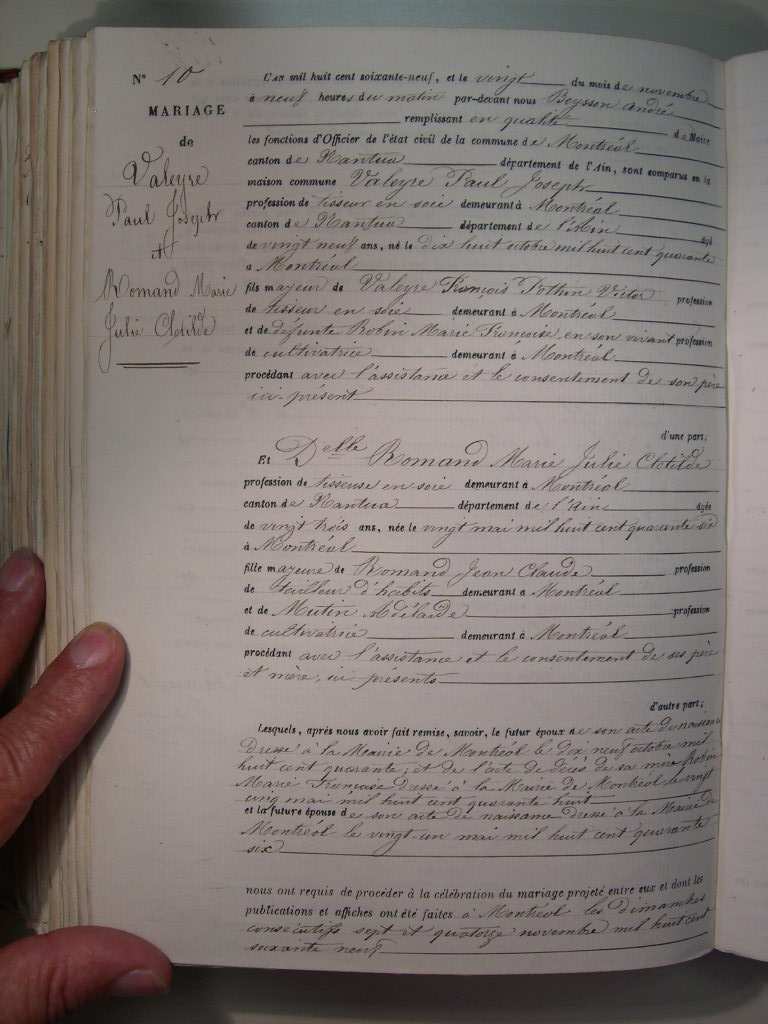 N° 10
MARIAGE
de
Valeyre
Paul Joseph
et
Romand Marie
Julie Clotilde
L'an mil huit cent soixante-neuf, et le vingt du mois de novembre
à neuf heures du matin par-devant nous Beysson André
remplissant en qualité de Maire
les fonctions d'Officier de l'état civil de la commune de Montréal
canton de Nantua département de l'Ain, sont comparus en la
maison commune Valeyre Paul Joseph
profession de tisseur en soie demeurant à Montréal
canton de Nantua département de l'Ain âgé
de vingt neuf ans, né le dix huit octobre mil huit cent quarante
à Montréal
fils majeur de Valeyre François Victor profession
de tisseur en soie demeurant à Montréal
et de défunte Robin Marie Françoise, en son vivant profession
de cultivatrice demeurant à Montréal
procédant avec l'assistance et le consentement de son père
ici présent
d'une part;
Et Delle Romand Marie Julie Clotilde
profession de tisseuse en soie demeurant à Montréal
canton de Nantua département de l'Ain âgée
de vingt trois ans, née le vingt mai mil huit cent quarante six
à Montréal
fille majeure de Romand Jean Claude profession
de tailleur d'habits demeurant à Montréal
et de Mutin Adélaïde profession
de cultivatrice demeurant à Montréal
procédant avec l'assistance et le consentement de ses père
et mère, ici présents
d'autre part;
Lesquels, après nous avoir fait remise, savoir, le futur époux de son acte de naissance
dressé à la Mairie de Montréal le dix neuf octobre mil
huit cent quarante; et de l'acte de décès de sa mère Robin
Marie Françoise dressé à la Mairie de Montréal le vingt
cinq mai mil huit cent quarante huit
et la future épouse de son acte de naissance dressé à la Mairie de
Montréal le vingt-un mai mil huit cent quarante
six
nous ont requis de procéder à la célébration du mariage projeté entre eux et dont les
publications et affiches ont été faites à Montréal les dimanches
consécutifs sept et quatorze novembre mil huit cent
soixante neuf